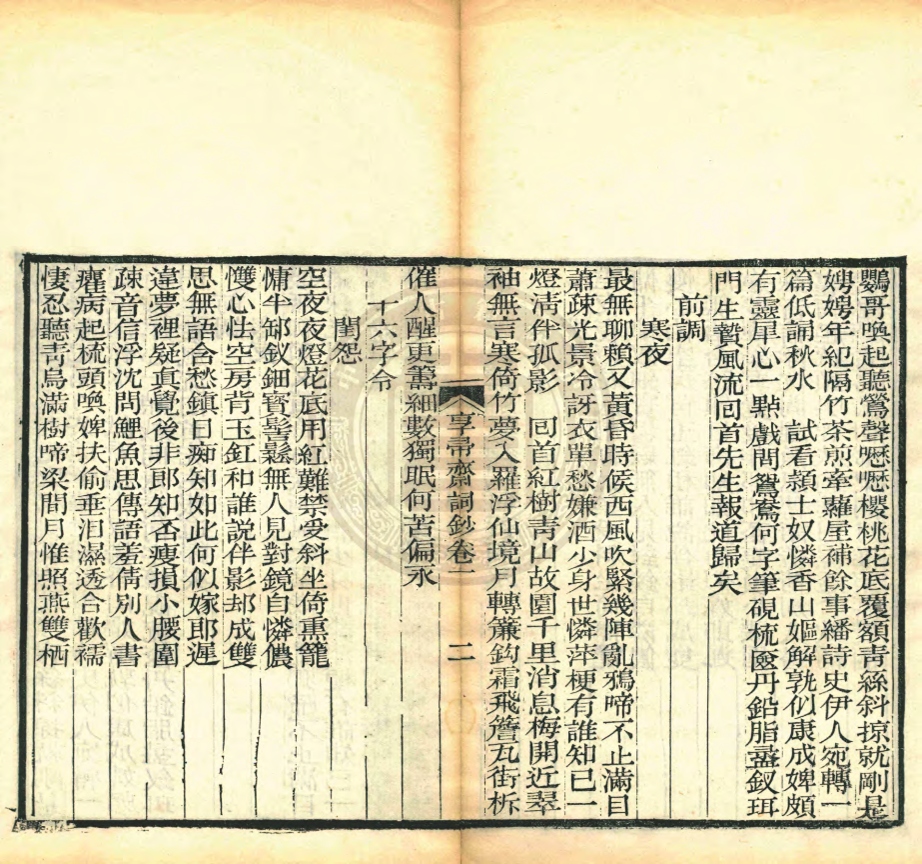 鸚哥喚起聽鶯聲嚦嚦櫻桃花底覆額青絲斜掠就剛是
娉娉年紀隔竹茶煎牽蘿屋補餘事繙詩史伊人宛轉一
篇低誦秋水　試看潁士奴憐香山嫗解孰似康成婢頗
有靈犀心一點戲問鴛鴦何字筆硯梳奩丹鉛脂盝釵珥
門生贄風流回首先生報道歸矣
前調
寒夜
最無聊賴又黃昏時候西風吹緊幾陣亂鴉啼不止滿目
蕭疎光景冷訝衣單愁嫌酒少身世憐萍梗有誰知已一
燈淸伴孤影　回首紅樹靑山故園千里消息梅開近翠
袖無言寒倚竹夢入羅浮仙境月轉簾鈎霜飛簷瓦街柝
催人醒更籌細數獨眠何苦偏永
十六字令
閨怨
空夜夜燈花底用紅難禁受斜坐倚熏籠
慵半嚲釵鈿寶髻鬆無人見對鏡自憐儂
慢心怯空房背玉釭和誰說伴影却成雙
思無語含愁鎮日痴知如此何似嫁郎遲
違夢裡疑真覺後非郎知否瘦損小腰圍
疎音信浮沈問鯉魚思傳語羞倩別人書
癯病起梳頭喚婢扶偷垂泪濕透合歡襦
悽忍聽靑烏滿樹啼梁間月惟照燕雙栖
享帚齋詞鈔卷一　二